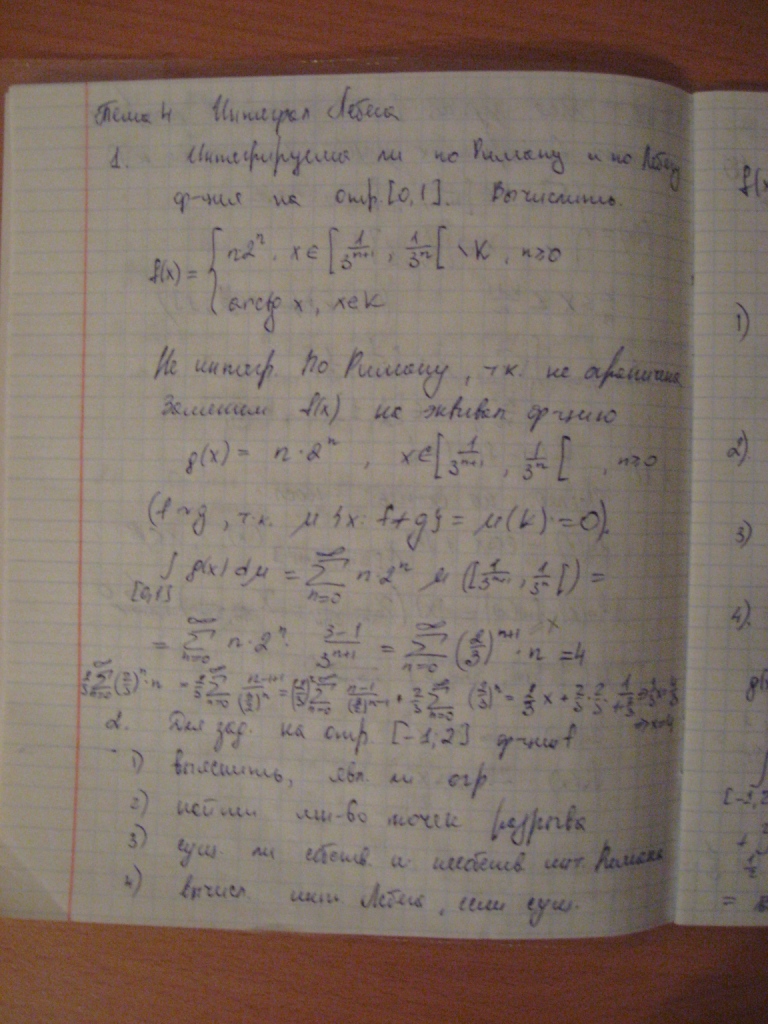 Тема 4 Интеграл Лебега
1. Интегрируема ли по Риману и по Лебегу
ф-ция на отр. [0,1]. Вычислить.
f(x) = { n2ⁿ, x∈[1/3ⁿ⁺¹, 1/3ⁿ[ \ K, n≥0
arctg x, x∈K
Не интегр. по Риману, т.к. не ограничена
Заменим f(x) на эквивал. ф-цию
g(x) = n·2ⁿ, x∈[1/3ⁿ⁺¹, 1/3ⁿ[, n≥0
(f~g, т.к. μ{x: f≠g} = μ(K) = 0).
∫[0,1] g(x)dμ = ∑ₙ₌₀^∞ n·2ⁿ μ([1/3ⁿ⁺¹, 1/3ⁿ[) =
= ∑ₙ₌₀^∞ n·2ⁿ · (3-1)/3ⁿ⁺¹ = ∑ₙ₌₀^∞ (2/3)ⁿ⁺¹ · n = 4
2. Для зад. на отр. [-1,2] ф-ции f
1) выяснить, явл. ли огр.
2) найти мн-во точек разрыва
3) сущ. ли собств. и несобств. инт. Римана
4) вычисл. инт. Лебега, если сущ.
f(x
1)
2)
3)
4).
g(
∫
[-1,2
=